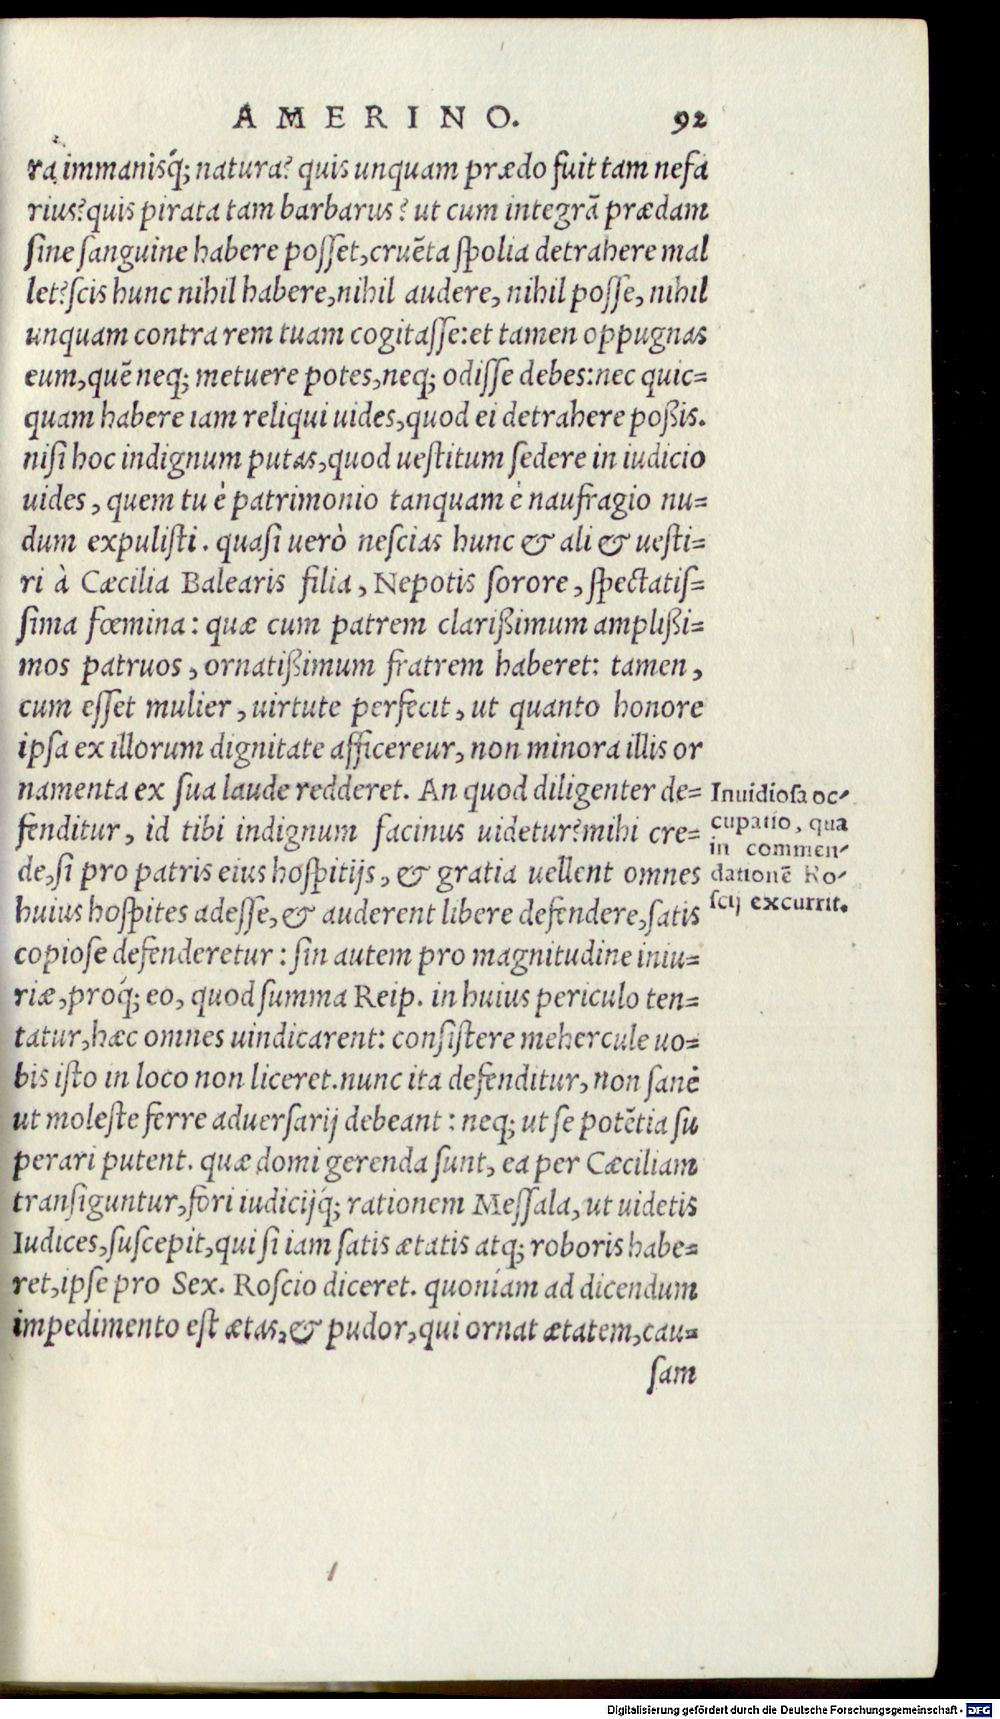 AMERINO. 92
ra, immanisq́; natura? quis unquam prædo fuit tam nefa
rius? quis pirata tam barbarus? ut cum integrã prædam
sine sanguine habere posset, cruẽta spolia detrahere mal
let? scis hunc nihil habere, nihil audere, nihil posse, nihil
unquam contra rem tuam cogitasse: et tamen oppugnas
eum, quẽ neq; metuere potes, neq; odisse debes: nec quic=
quam habere iam reliqui uides, quod ei detrahere poßis.
nisi hoc indignum putas, quod uestitum sedere in iudicio
uides, quem tu è patrimonio tanquam è naufragio nu=
dum expulisti. quasi uerò nescias hunc & ali & uesti=
ri à Cæcilia Balearis filia, Nepotis sorore, spectatis=
sima fœmina: quæ cum patrem clarißimum amplißi=
mos patruos, ornatißimum fratrem haberet: tamen,
cum esset mulier, uirtute perfecit, ut quanto honore
ipsa ex illorum dignitate afficereur, non minora illis or
namenta ex sua laude redderet. An quod diligenter de=
fenditur, id tibi indignum facinus uidetur? mihi cre=
de, si pro patris eius hospitijs, & gratia uellent omnes
huius hospites adesse, & auderent libere defendere, satis
copiose defenderetur: sin autem pro magnitudine iniu=
riæ, proq́; eo, quod summa Reip. in huius periculo ten=
tatur, hæc omnes uindicarent: consistere mehercule uo=
bis isto in loco non liceret. nunc ita defenditur, non sanè
ut moleste ferre aduersarij debeant: neq; ut se potẽtia su
perari putent. quæ domi gerenda sunt, ea per Cæciliam
transiguntur, fori iudicijq́; rationem Messala, ut uidetis
Iudices, suscepit, qui si iam satis ætatis atq; roboris habe=
ret, ipse pro Sex. Roscio diceret. quoniam ad dicendum
impedimento est ætas, & pudor, qui ornat ætatem, cau=
sam
Inuidiosa oc-
cupatio, qua
in commen-
dationẽ Ro-
scij excurrit.
Digitalisierung gefördert durch die Deutsche Forschungsgemeinschaft - DFG